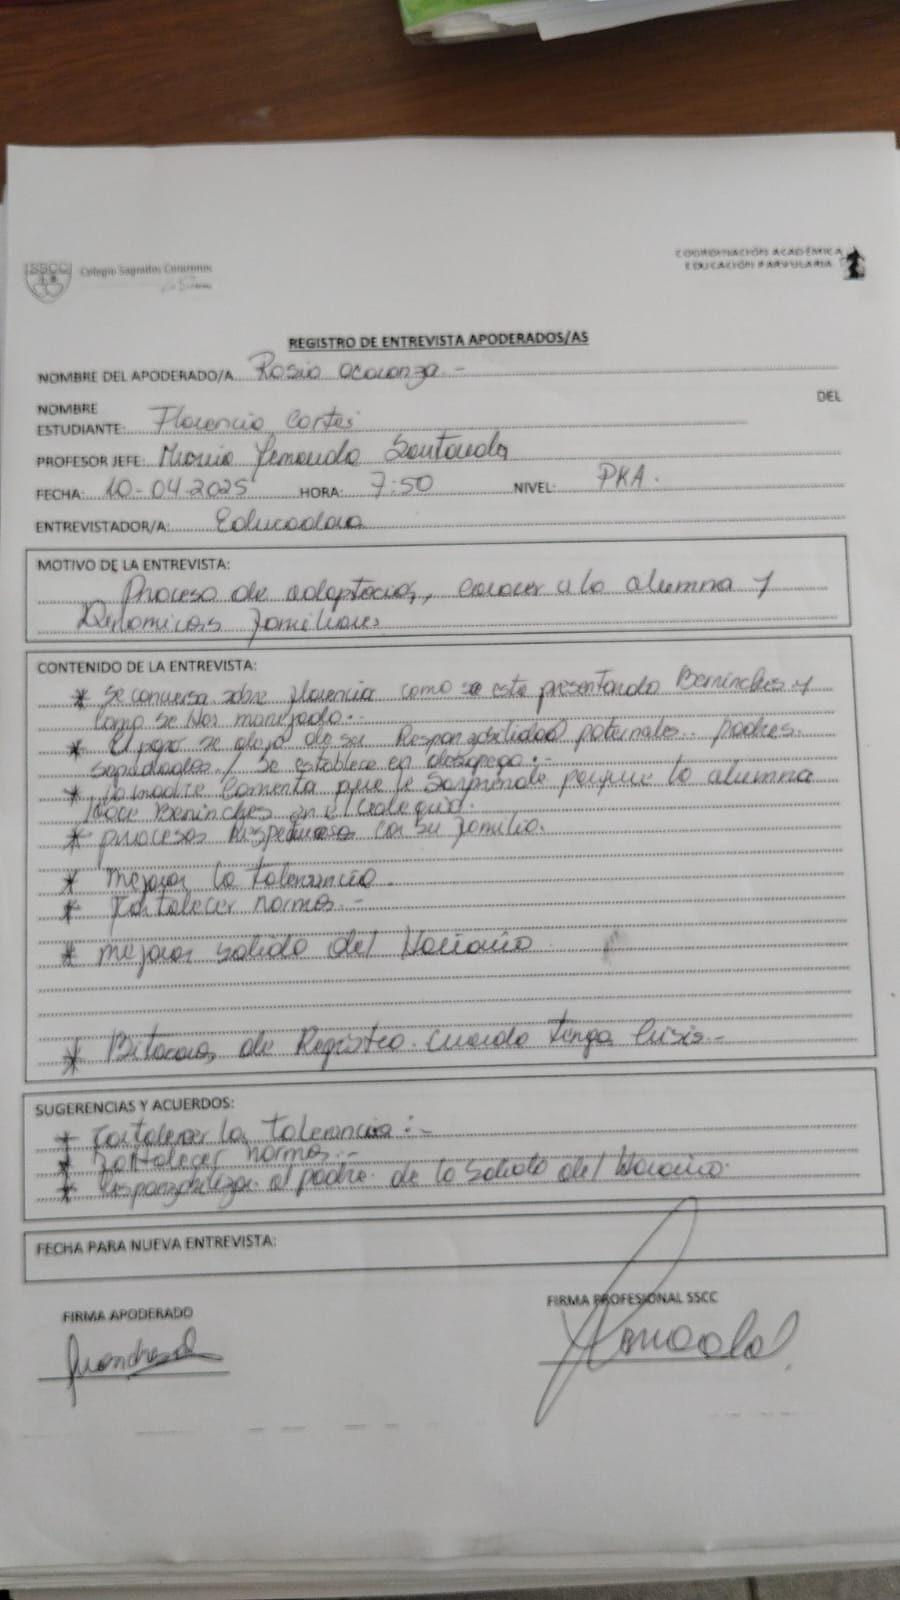 SSCC
Colegio Sagrados Corazones
La Serena
COORDINACIÓN ACADÉMICA
EDUCACIÓN PARVULARIA
REGISTRO DE ENTREVISTA APODERADOS/AS
NOMBRE DEL APODERADO/A Rosio
NOMBRE DEL
ESTUDIANTE: Florencia Cortes
PROFESOR JEFE: Maria Fernanda Santander
FECHA: 10-04-2025 HORA: 7:50 NIVEL: PKA.
ENTREVISTADOR/A: Educadora
MOTIVO DE LA ENTREVISTA:
Proceso de adaptacion, conocer a la alumna y
Dinamicas familiares
CONTENIDO DE LA ENTREVISTA:
* Se conversa sobre florencia como se esta presentando Berrinches y
como se han manejado.-
* El papá se alejo de su Responsabilidad paternales.. padres
separados / se establece en desapego.-
* La madre comenta que le Sorprende porque la alumna
Hace Berinches en el colegio.
* procesos Respetuosos con su familia.
* mejorar la tolerancia.
* Fortalecer normas.-
* mejorar salida del Horario
* Bitacora de Registro cuando tenga crisis.-
SUGERENCIAS Y ACUERDOS:
* Fortalecer la tolerancia.-
* Fortalecer normas.-
* Responzabilizar al padre de la salida del Horario.
FECHA PARA NUEVA ENTREVISTA:
FIRMA APODERADO FIRMA PROFESIONAL SSCC